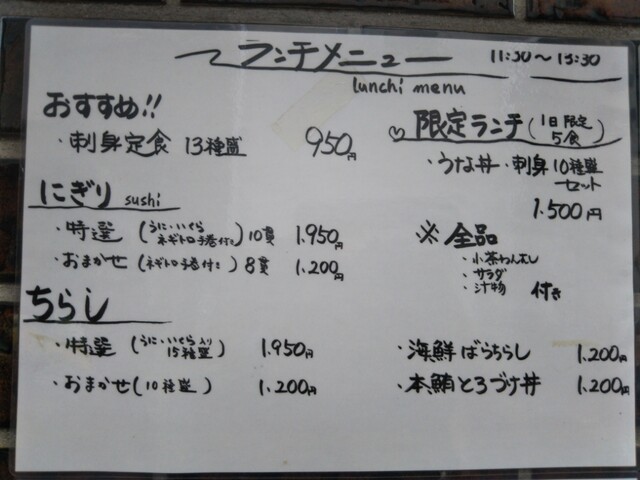 ランチメニュー 11:30~13:30
lunchi menu
おすすめ!!
・刺身定食 13種盛 950円
♡限定ランチ(1日限定5食)
・うな丼・刺身10種盛セット
1.500円
にぎり sushi
・特選(うに・いくらネギトロ手巻付き)10貫 1.950円
・おまかせ(ネギトロ手巻付き)8貫 1.200円
※全品
・小茶わんむし
・サラダ
・汁物 付き
ちらし
・特選(うに・いくら入り15種盛) 1.950円
・おまかせ(10種盛) 1.200円
・海鮮ばらちらし 1.200円
・本鮪とろづけ丼 1.200円